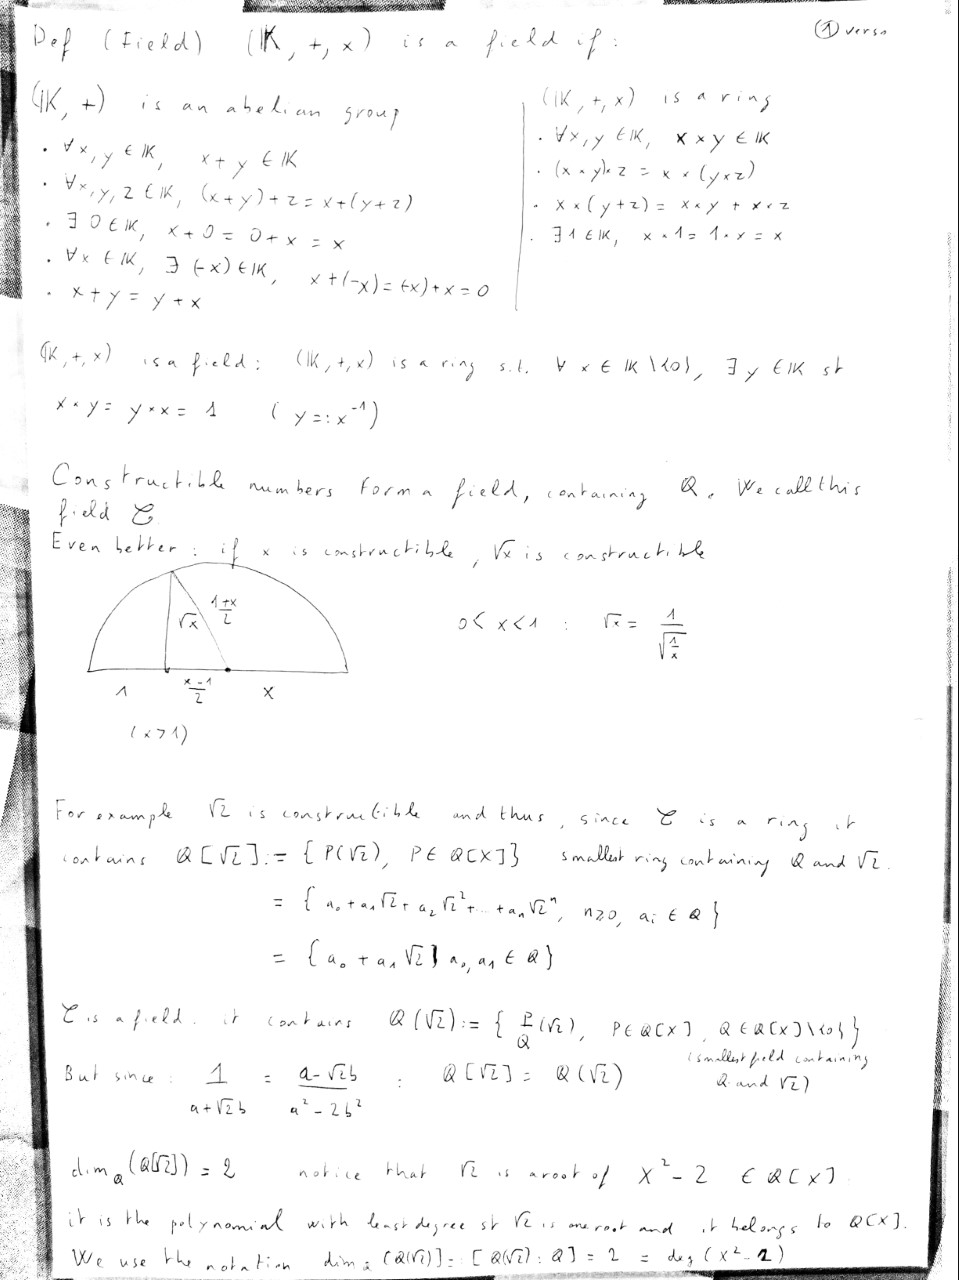 Def (Field) (𝕂, +, ×) is a field if :
① verso
(𝕂, +) is an abelian group
. ∀x, y ∈ 𝕂, x + y ∈ 𝕂
. ∀x, y, z ∈ 𝕂, (x+y)+z = x+(y+z)
. ∃ 0 ∈ 𝕂, x + 0 = 0 + x = x
. ∀x ∈ 𝕂, ∃ (-x) ∈ 𝕂, x + (-x) = (-x) + x = 0
. x + y = y + x
(𝕂, +, ×) is a ring
. ∀x, y ∈ 𝕂, x × y ∈ 𝕂
. (x × y) × z = x × (y × z)
. x × (y + z) = x × y + x × z
. ∃ 1 ∈ 𝕂, x × 1 = 1 × x = x
(𝕂, +, ×) is a field : (𝕂, +, ×) is a ring s.t. ∀ x ∈ 𝕂 \ {0}, ∃ y ∈ 𝕂 st
x × y = y × x = 1 ( y =: x⁻¹)
Constructible numbers form a field, containing Q. We call this
field C
Even better : if x is constructible, √x is constructible
√x (1+x)/2
1 (x-1)/2 x
(x > 1)
0 < x < 1 : √x = 1/√(1/x)
For example √2 is constructible and thus, since C is a ring it
contains Q[√2] := { P(√2), P ∈ Q[X] } smallest ring containing Q and √2.
= { a₀ + a₁√2 + a₂√2² + ... + aₙ√2ⁿ, n ≥ 0, aᵢ ∈ Q }
= { a₀ + a₁√2 | a₀, a₁ ∈ Q }
C is a field. it contains Q(√2) := { P/Q (√2), P ∈ Q[X], Q ∈ Q[X] \ {0} }
(smallest field containing
Q and √2)
But since : 1/(a+√2b) = (a-√2b)/(a²-2b²) : Q[√2] = Q(√2)
dim_Q (Q[√2]) = 2 notice that √2 is a root of X² - 2 ∈ Q[X]
it is the polynomial with least degree st √2 is one root and it belongs to Q[X].
We use the notation dim_Q (Q(√2)) = [Q(√2) : Q] = 2 = deg (X² - 2)